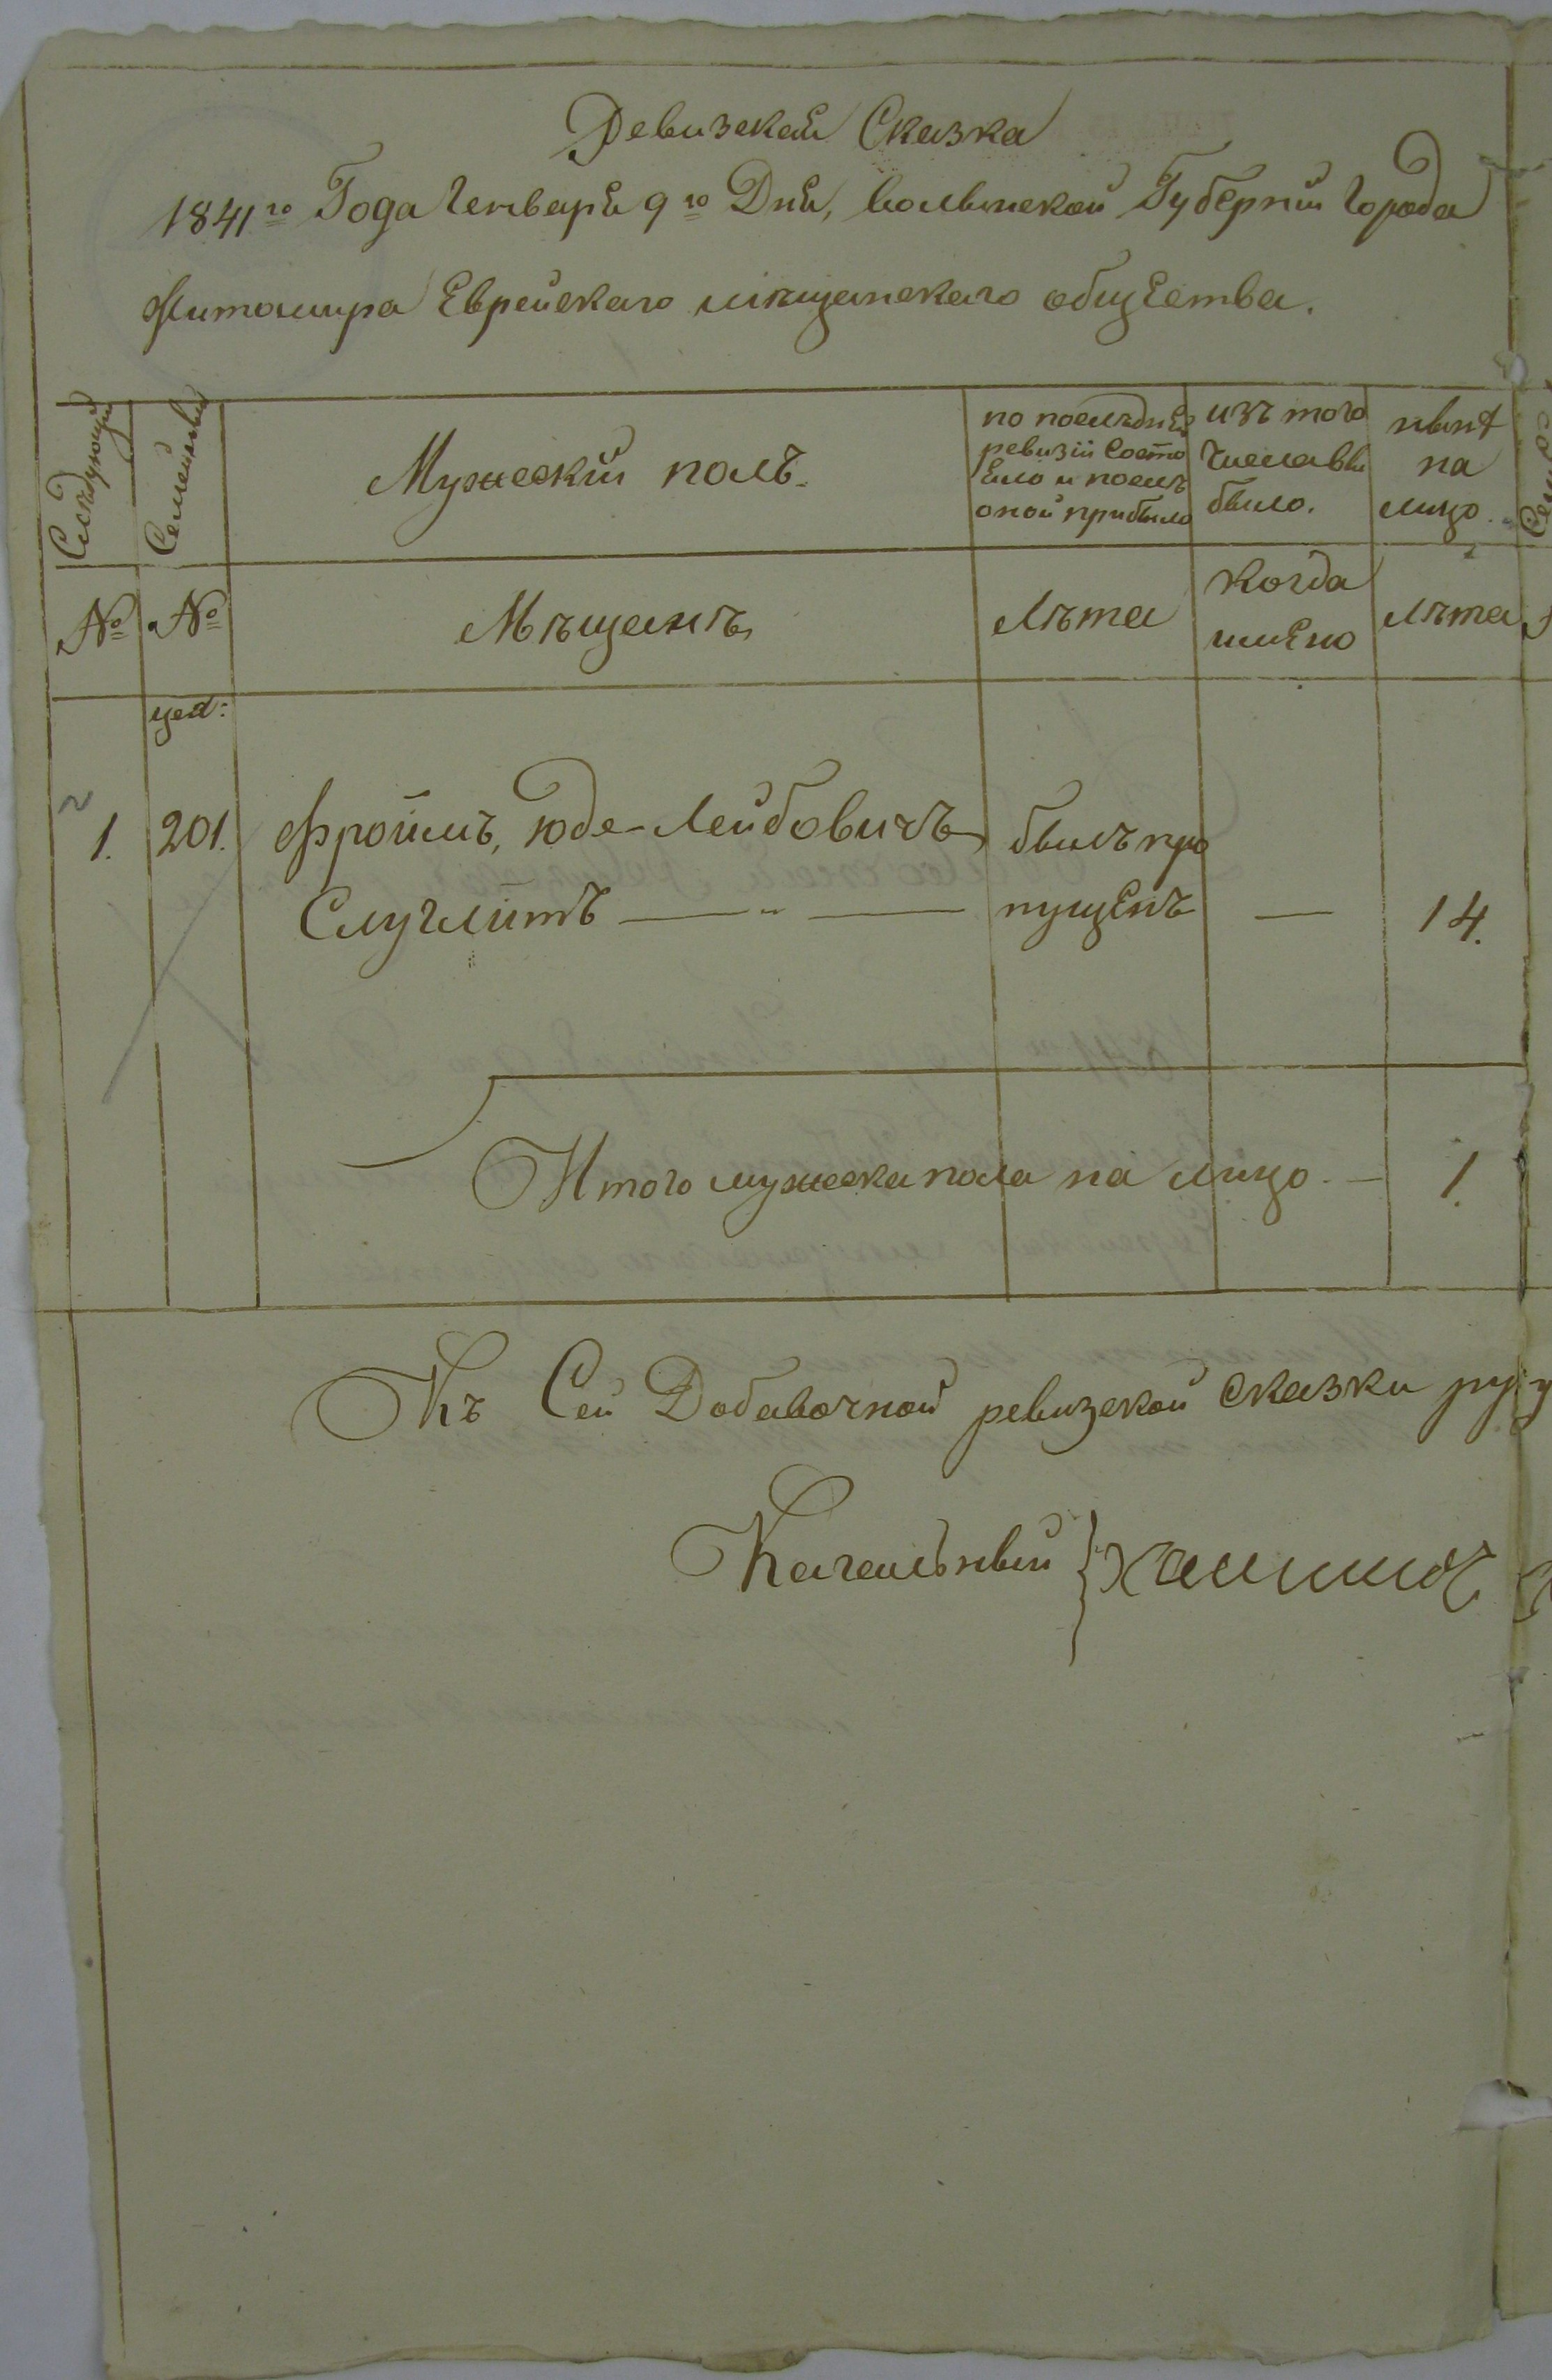 Ревизская Сказка
1841го Года Генваря 9го Дня, волынской Губерній Города
Житомира Еврейскаго мѣщанскаго общества.
Следующій
Семейный
Мужескій полъ.
по послѣдней
ревизіи Состо
яло и послѣ
оной прибыло
изъ того
числавы
было.
нынѣ
на
лицо.
№
№
Мѣщанъ
Лѣта
Когда
имено
Лѣта
1.
201.
Фроимъ, Юдя-Лейбовичъ
былъ про
Случлитъ
пущенъ
—
14.
Итого мужеска пола на лицо. — 1.
Къ Сей Добавочной ревизской Сказки
Кагальный